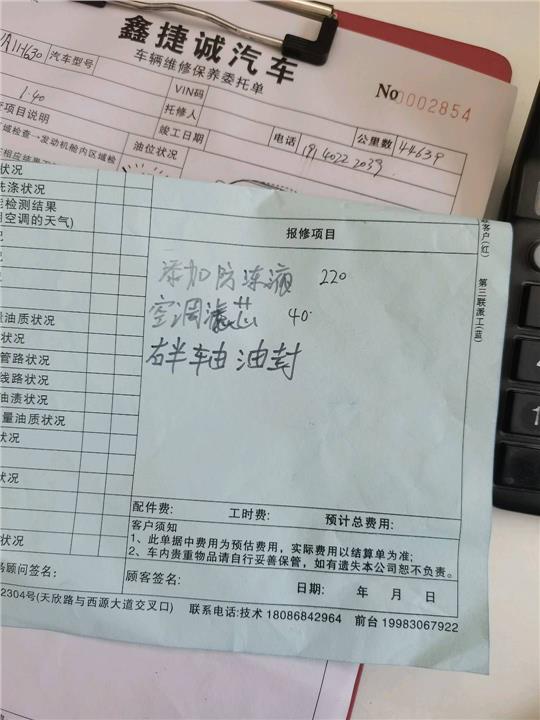 鑫捷诚汽车
车辆维修保养委托单
No 0002854
汽车型号
VIN码
1.40
托修人
项目说明
竣工日期
电话 191 4022 2039
公里数 44639
域检查→发动机舱内区域检
油位状况
状况
洗涤状况
检测结果
空调的天气)
况
量油质状况
状况
管路状况
线路状况
油渍状况
量油质状况
状况
况
报修项目
添加防冻液 220
空调滤芯 40.
右半车由 油封
配件费: 工时费: 预计总费用:
客户须知
1、此单据中费用为预估费用，实际费用以结算单为准;
2、车内贵重物品请自行妥善保管，如有遗失本公司恕不负责。
顾问签名:
顾客签名:
日期: 年 月 日
2304号(天欣路与西源大道交叉口) 联系电话:技术 18086842964 前台 19983067922
客户(红)
第三联派工(蓝)